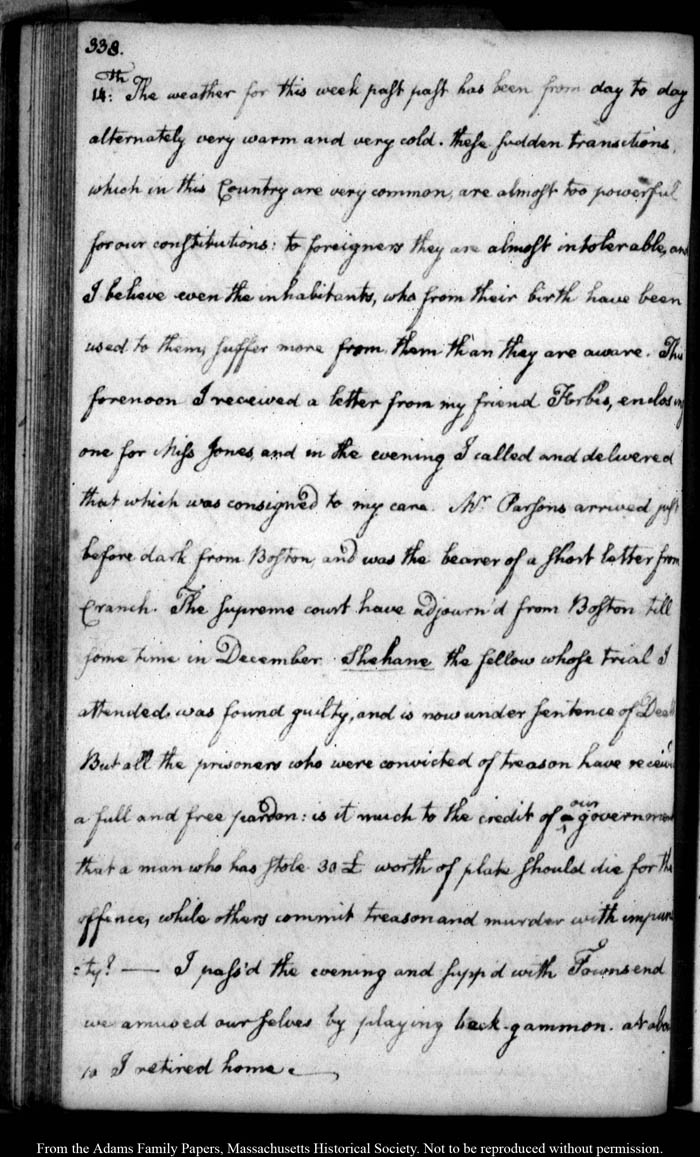 338.
14:th The weather for this week past past has been from day to day
alternately very warm and very cold. these sudden transitions,
which in this Country are very common, are almost too powerful
for our constitutions: to foreigners they are almost intolerable, an
I believe even the inhabitants, who from their birth have been
used to them, suffer more from them than they are aware. This
forenoon I received a letter from my friend Forbes, enclosing
one for Miss Jones, and in the evening I called and delivered
that which was consigned to my care. Mr. Parsons arrived just
before dark from Boston, and was the bearer of a short letter from
Cranch. The supreme court have adjourn'd from Boston till
some time in December. Shehane the fellow whose trial I
attended, was found guilty, and is now under sentence of Death
But all the prisoners who were convicted of treason have receiv'd
a full and free pardon: is it much to the credit of our government
that a man who has stole 30 £ worth of plate should die for the
offence, while others commit treason and murder with impun
=ity? — I pass'd the evening and supp'd with Townsend
we amused ourselves by playing back-gammon. at abo
10 I retired home.
From the Adams Family Papers, Massachusetts Historical Society. Not to be reproduced without permission.